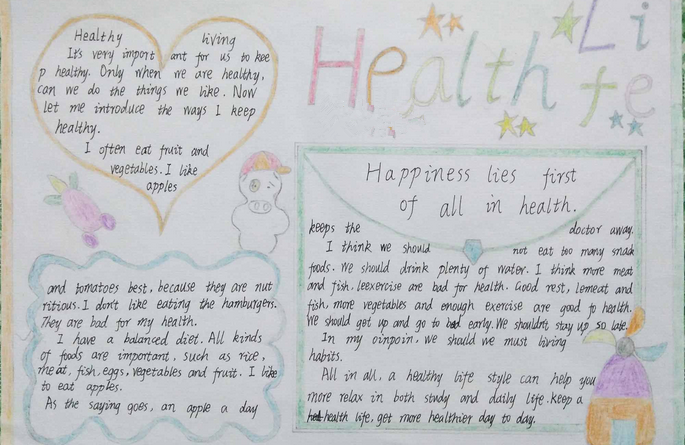 Health Life
Healthy living
It's very important for us to kee
p healthy. Only when we are healthy,
can we do the things we like. Now
let me introduce the ways I keep
healthy.
I often eat fruit and
vegetables. I like
apples
and tomatoes best, because they are nut
ritious. I don't like eating the hamburgers.
They are bad for my health.
I have a balanced diet. All kinds
of foods are important, such as rice,
meat, fish, eggs, vegetables and fruit. I like
to eat apples.
As the saying goes, an apple a day
Happiness lies first
of all in health.
keeps the doctor away.
I think we should not eat too many snack
foods. We should drink plenty of water. I think more meat
and fish, leexercise are bad for health. Good rest, lemeat and
fish, more vegetables and enough exercise are good fo health.
We should get up and go to bed early. We shouldn't stay up so late.
In my oinpoin, we should we must living
habits.
All in all, a healthy life style can help you
more relax in both study and daily life. keep a
health life, get more healthier day to day.